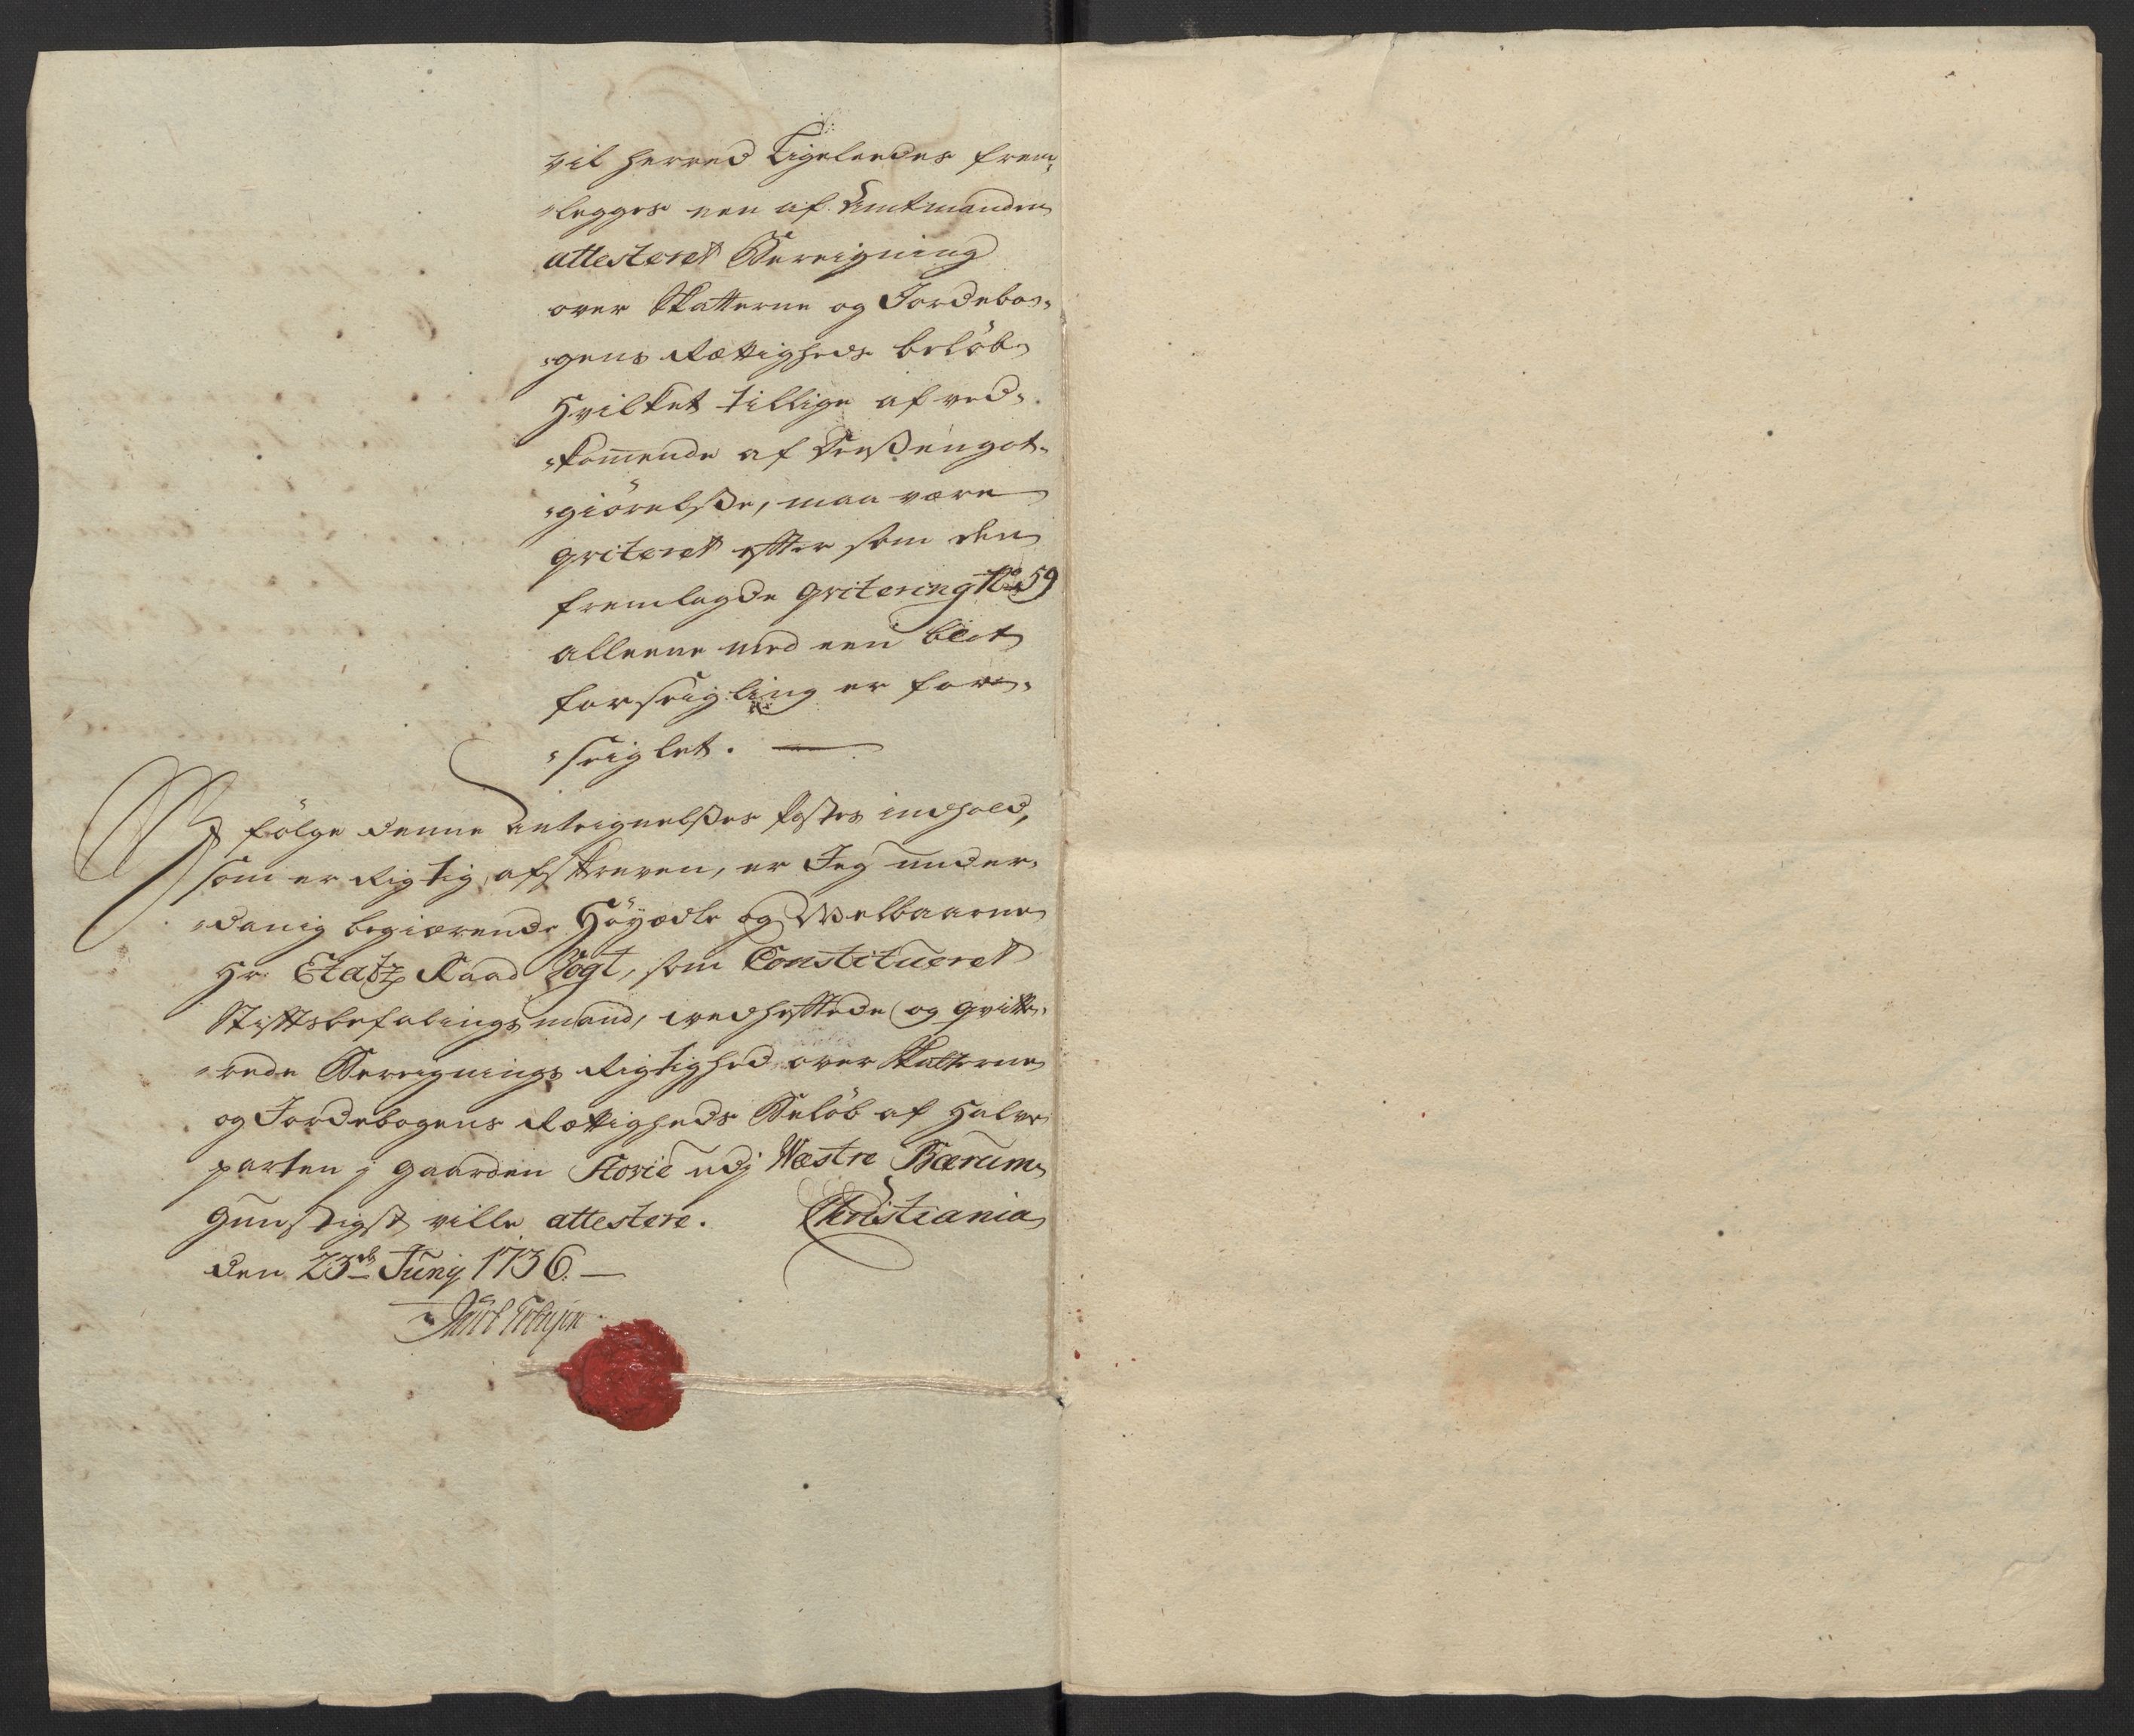 vil herved Ligeleedes frem-
-legges een af Amtmanden
attesteret Bereigning
over Skatterne og Jordebo-
-gens Rættigheds beløb
Hvilket tillige af ved-
-kommende af
-giörelsse, maa være
qviteret efftter som den
fremlagde qvitering No 59
alleene med een blot
forseigling er for-
-seiglet. —
J følge denne Anteignelsses Postes indhold,
som er Rigtig afskreven, er Jeg under-
-danig begiærende Höyædle og Welbaarne
Hr. Etatz Raad Vogt, som Constitueret
Stifftsbefalingsmand, wedhefftede og qvitte-
-rede Bereignings Rigtighed over Skatterne
og Jordebogens Rættigheds Beløb af Halve
parten j gaarden Stovie udj Wæstre Bærum
gunstigst ville attestere. Christiania
den 23de Junij 1736. —